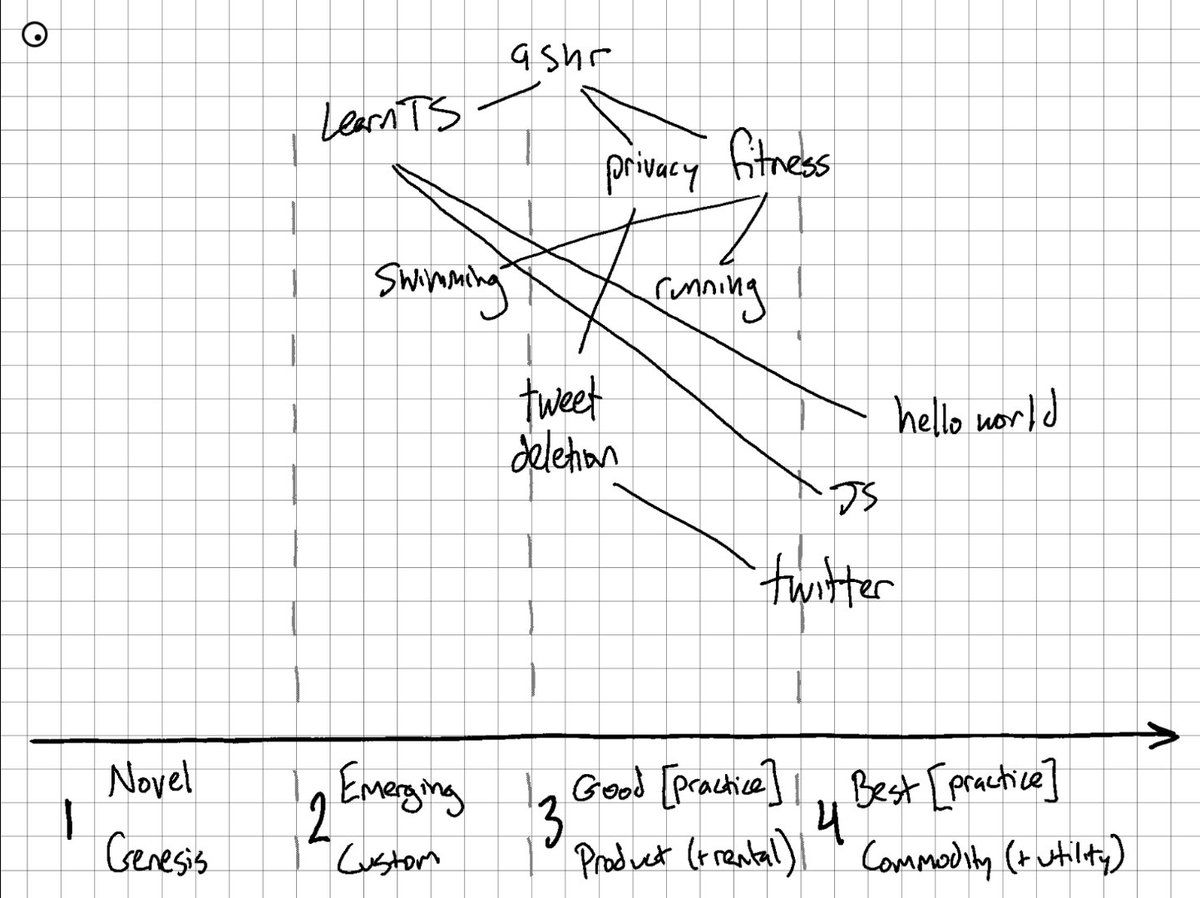 qshr
Learn TS
privacy
fitness
swimming
running
tweet
deletion
hello world
JS
twitter
1
Novel
Genesis
2
Emerging
Custom
3
Good [practice]
Product (+ rental)
4
Best [practice]
Commodity (+ utility)